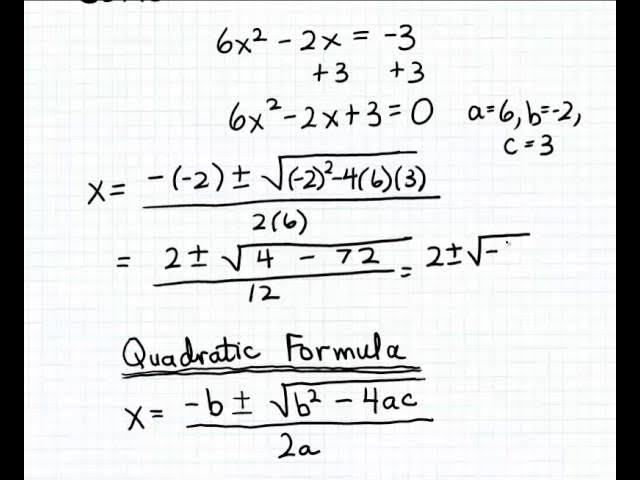 6x² - 2x = -3
+3 +3
6x² - 2x + 3 = 0 a=6, b=-2,
c = 3
x = -(-2) ± √(-2)² - 4(6)(3)
2(6)
= 2 ± √4 - 72 = 2 ± √-
12
Quadratic Formula
x = -b ± √b² - 4ac
2a